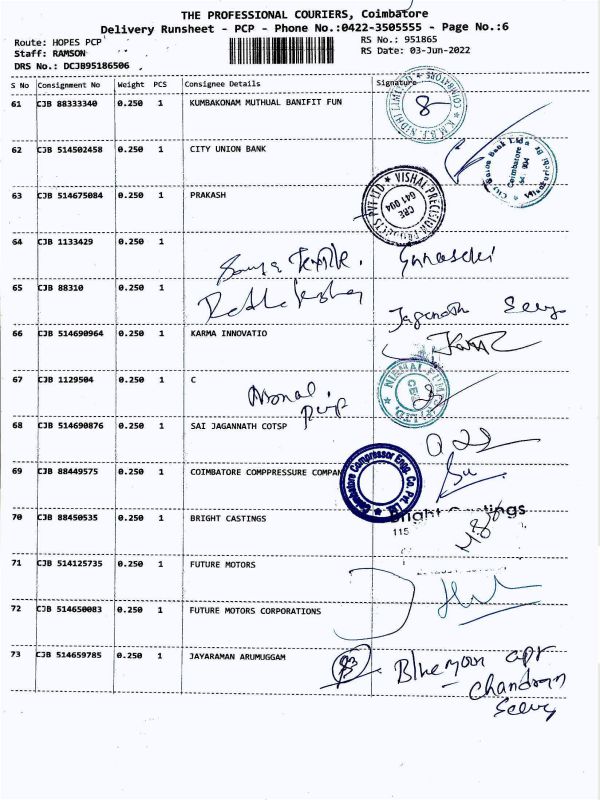 THE PROFESSIONAL COURIERS, Coimbatore
Delivery Runsheet - PCP - Phone No.:0422-3505555 - Page No.:6
Route: HOPES PCP
RS No.: 951865
Staff: RAMSON
RS Date: 03-Jun-2022
DRS No.: DCJB95186506
S No Consignment No Weight PCS Consignee Details Signature
61 CJB 88333340 0.250 1 KUMBAKONAM MUTHUAL BANIFIT FUN
62 CJB 514502458 0.250 1 CITY UNION BANK
63 CJB 514675084 0.250 1 PRAKASH
VISHAL PRECISION PRODUCTS PVT LTD
CBE
641 004
64 CJB 1133429 0.250 1
65 CJB 88310 0.250 1
Jaganath
66 CJB 514690964 0.250 1 KARMA INNOVATIO
67 CJB 1129504 0.250 1 C
68 CJB 514690876 0.250 1 SAI JAGANNATH COTSP
69 CJB 88449575 0.250 1 COIMBATORE COMPPRESSURE COMPAN
Coimbatore Compressor Engg. Co. Pvt. Ltd.
70 CJB 88450535 0.250 1 BRIGHT CASTINGS
115
71 CJB 514125735 0.250 1 FUTURE MOTORS
72 CJB 514650083 0.250 1 FUTURE MOTORS CORPORATIONS
73 CJB 514659785 0.250 1 JAYARAMAN ARUMUGGAM
Bluemoon apt
chandran